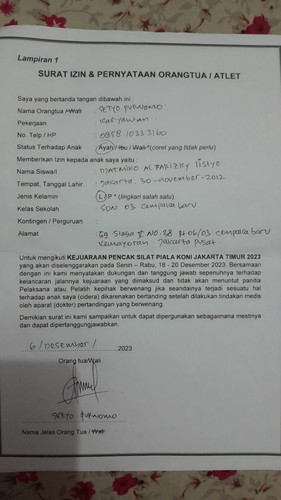 Lampiran 1
SURAT IZIN & PERNYATAAN ORANGTUA / ATLET
Saya yang bertanda tangan dibawah ini :
Nama Orangtua / Wali : SETYO PURWOMO
Pekerjaan : karyawan
No. Telp / HP : 0858 1033 3160
Status Terhadap Anak : Ayah / Ibu / Wali *(coret yang tidak perlu)
Memberikan Izin kepada anak saya yaitu :
Nama Siswa/i : ALFARIZKY
Tempat, Tanggal Lahir : Jakarta, 30-november-2012
Jenis Kelamin : L/P * (lingkari salah satu)
Kelas Sekolah : SDN 03 cempaka baru
Kontingen / Perguruan :
Alamat : Gg Siaga I NO.28 Rt 06/03 cempaka baru
Kemayoran Jakarta Pusat
Untuk mengikuti KEJUARAAN PENCAK SILAT PIALA KONI JAKARTA TIMUR 2023
yang akan diselenggarakan pada Senin – Rabu, 18 - 20 Desember 2023. Bersamaan
dengan ini kami menyatakan dukungan dan tanggung jawab sepenuhnya terhadap
kelancaran jalannya kejuaraan yang dimaksud dan tidak akan menuntut panitia
Pelaksana atau Pelatih kepihak berwenang jika seandainya terjadi sesuatu hal
terhadap anak saya (cidera) dikarenakan bertanding setelah dilakukan tindakan medis
oleh aparat (dokter) pertandingan yang berwenang.
Demikian surat ini kami sampaikan untuk dapat dipergunakan sebagaimana mestinya
dan dapat dipertanggungjawabkan.
6 / Desember / 2023
Orang tua/Wali
SETYO PURWOMO
Nama Jelas Orang Tua / Wali